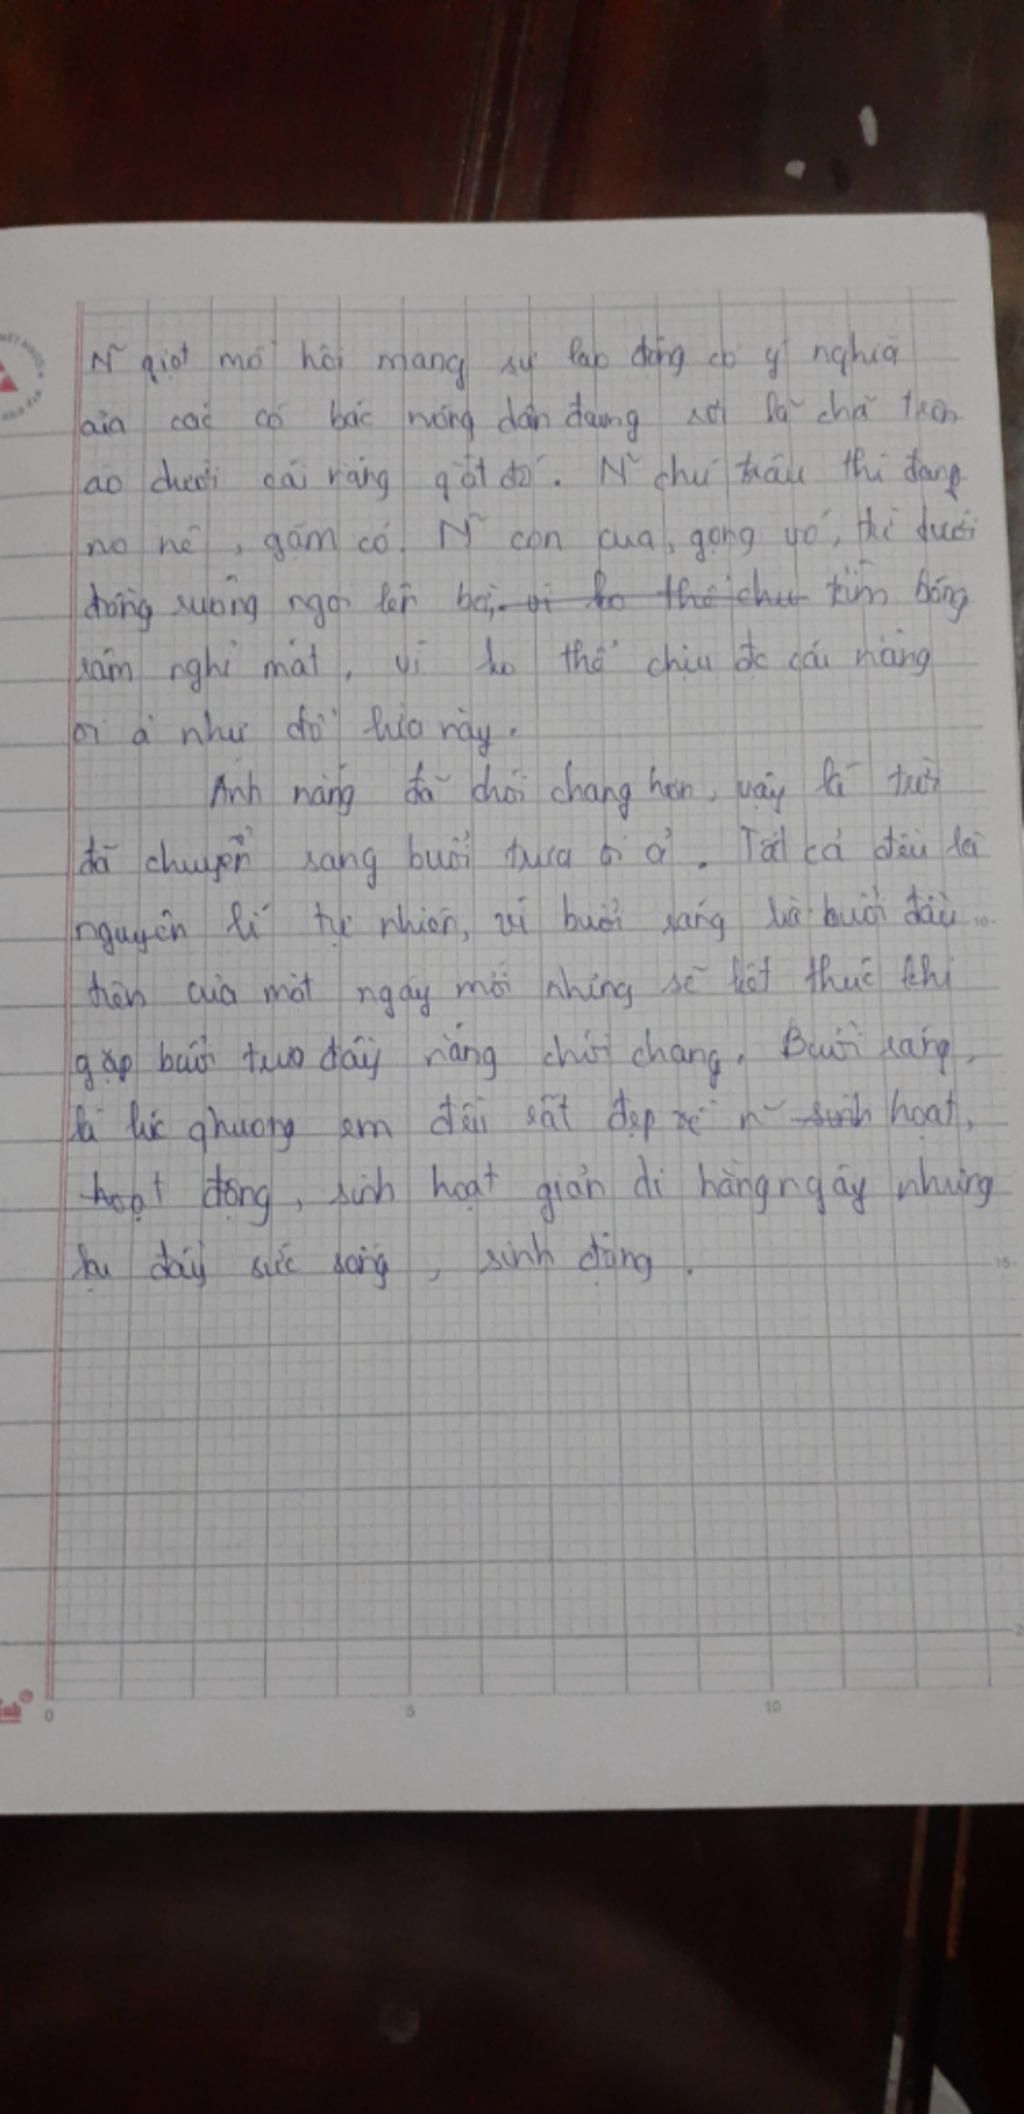 N~ giọt mồ hôi mang sự lao động có ý nghĩa
của các cô bác nông dân đang rơi lã chã trên
áo dưới cái nắng gắt đó. N~ chú trâu thì đang
no nê, gặm cỏ. N~ con cua, gọng vó, thì dưới
đồng ruộng ngoi lên bờ, vì ko thể chịu tìm bóng
râm nghỉ mát, vì ko thể chịu đc cái nắng
oi ả như đổ lửa này.
Ánh nắng đã chói chang hơn, vậy là trời
đã chuyển sang buổi trưa oi ả. Tất cả đều là
nguyên lí tự nhiên, vì buổi sáng là buổi đầu
tiên của một ngày mới nhưng sẽ kết thúc khi
gặp buổi trưa đầy nắng chói chang. Buổi sáng,
là lúc qhương em đều rất đẹp về n~ sinh hoạt,
hoạt động, sinh hoạt giản dị hàng ngày nhưng
đầy sức sống, sinh động.
0 5 10
10
15